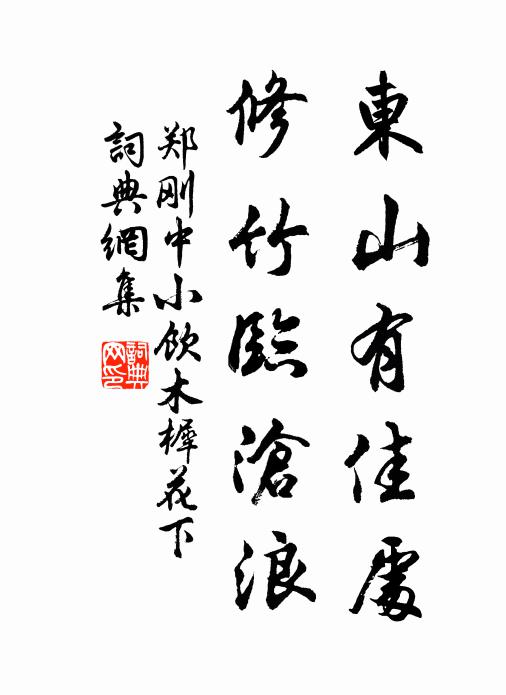 東山有佳處
修竹臨滄浪
郑刚中小饮木樨花下
詞典網集
詞典网印